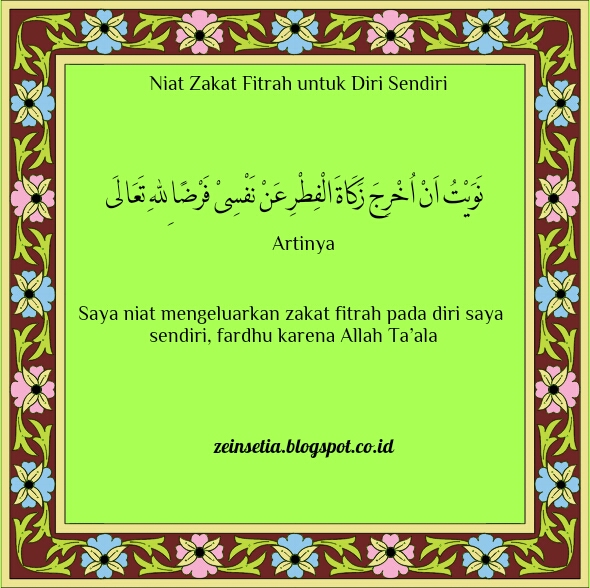 Niat Zakat Fitrah untuk Diri Sendiri
نَوَيْتُ اَنْ اُخْرِجَ زَكَاةَ الْفِطْرِ عَنْ نَفْسِىْ فَرْضًا لِلّٰهِ تَعَالَى
Artinya
Saya niat mengeluarkan zakat fitrah pada diri saya
sendiri, fardhu karena Allah Ta’ala
zeinsetia.blogspot.co.id